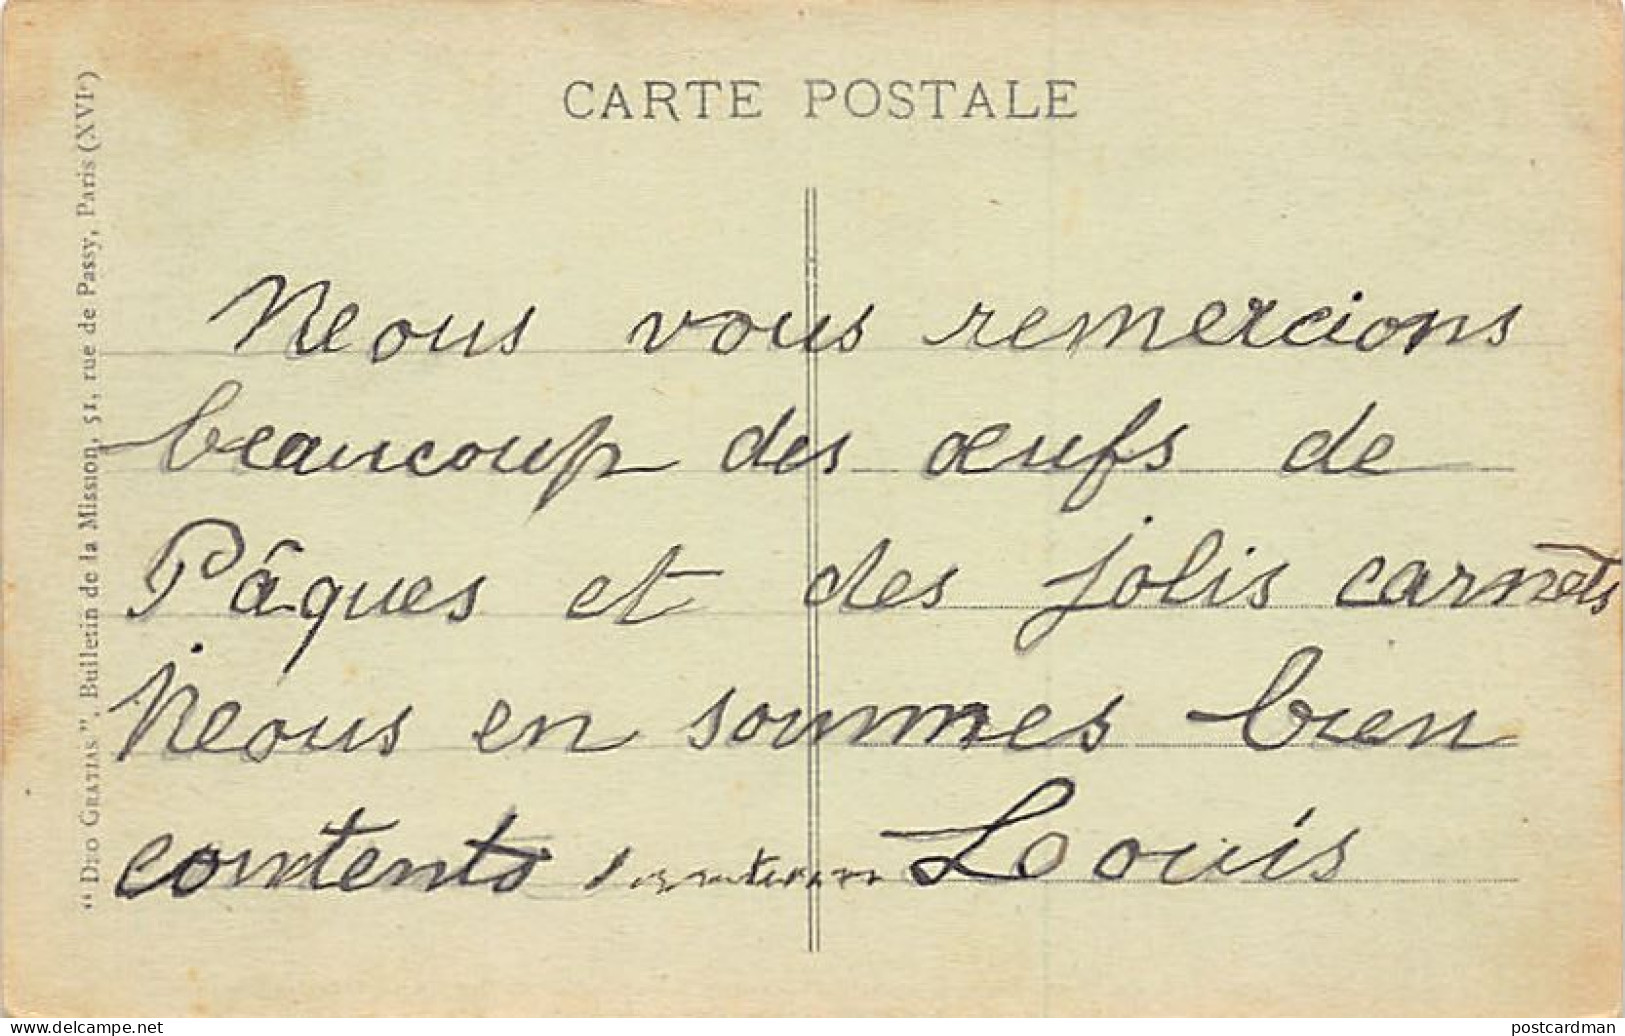 CARTE POSTALE
Neous vous remercions
beaucoup des œufs de
Pâques et des jolis carnets
Neous en sommes bien
contents Louis
"DEO GRATIAS", Bulletin de la Mission, 51, rue de Passy, Paris (XVIe)
www.delcampe.net
postcardman